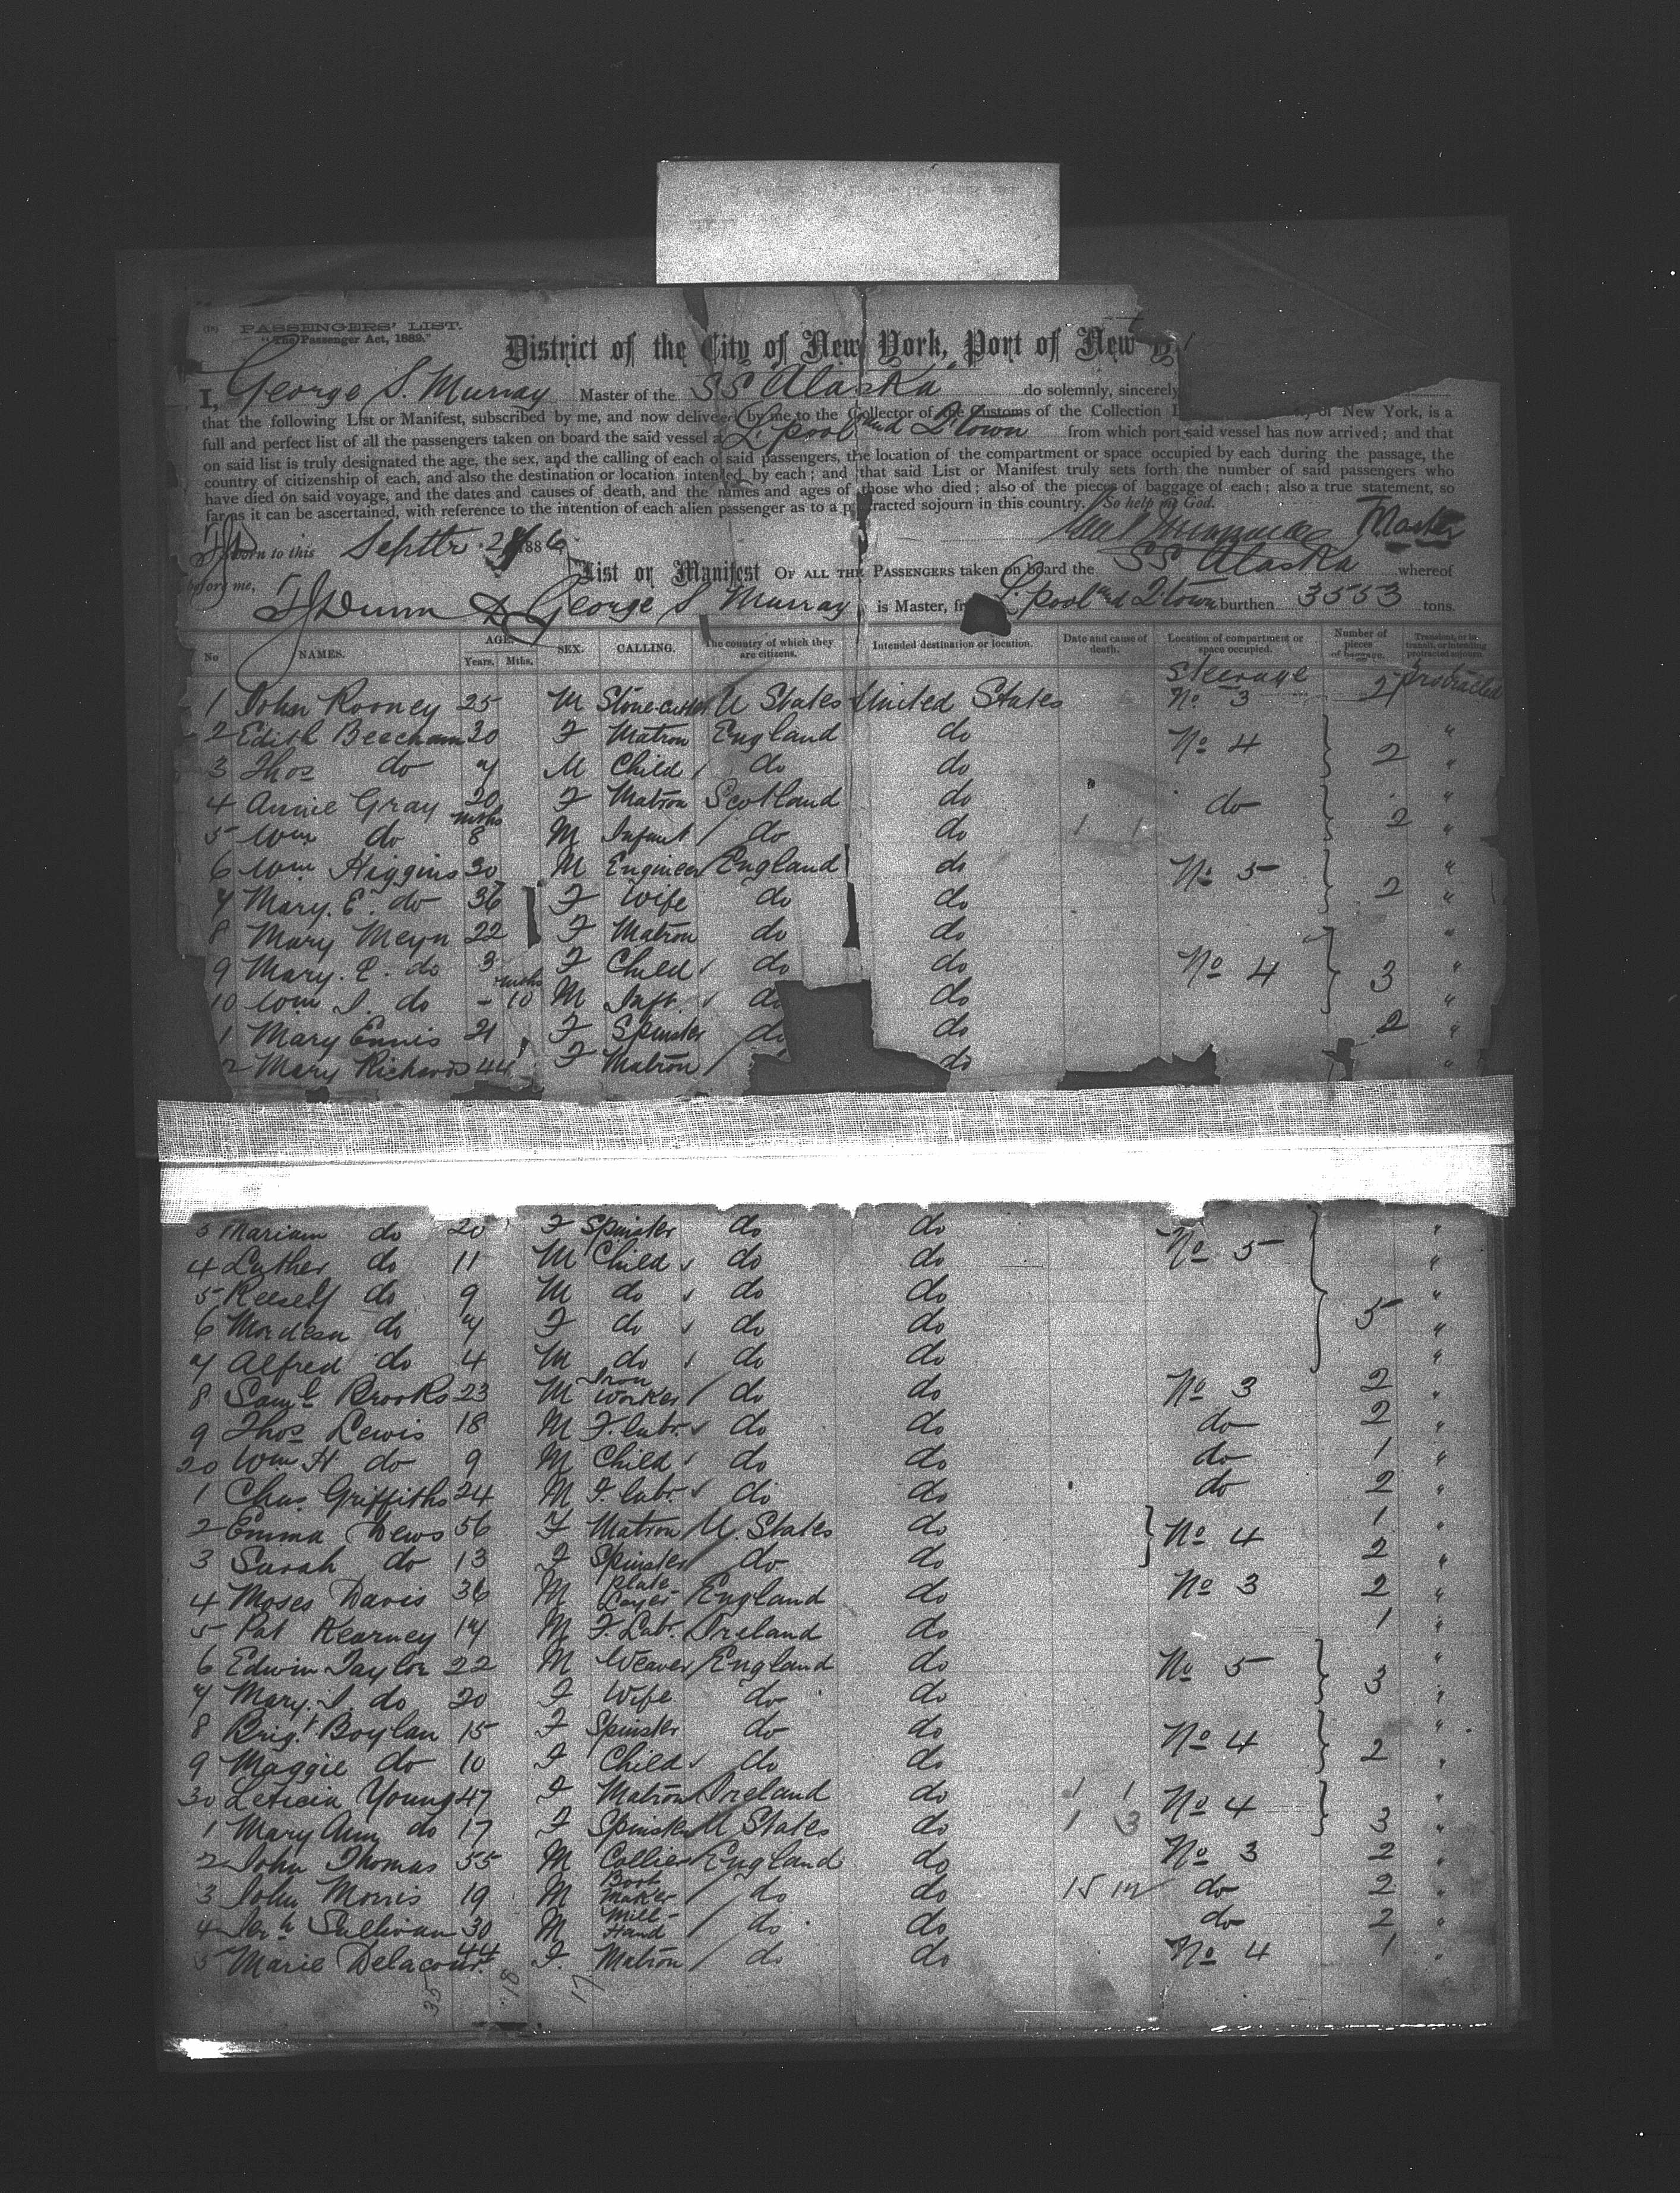 PASSENGERS' LIST.
"The Passenger Act, 1882."
District of the City of New York, Port of New
I, George S. Murray Master of the SS Alaska do solemnly, sincerely
that the following List or Manifest, subscribed by me, and now delivered by me to the Collector of the Customs of the Collection of New York, is a
full and perfect list of all the passengers taken on board the said vessel at L'pool and Q'town from which port said vessel has now arrived; and that
on said list is truly designated the age, the sex, and the calling of each of said passengers, the location of the compartment or space occupied by each during the passage, the
country of citizenship of each, and also the destination or location intended by each; and that said List or Manifest truly sets forth the number of said passengers who
have died on said voyage, and the dates and causes of death, and the names and ages of those who died; also of the pieces of baggage of each; also a true statement, so
far as it can be ascertained, with reference to the intention of each alien passenger as to a protracted sojourn in this country. So help me God.
Master
to this Septbr. 1886
before me, List or Manifest OF ALL THE PASSENGERS taken on board the SS Alaska whereof
TJ Dunn George S Murray is Master, from L'pool and Q'town burthen 3553 tons.
No NAMES. AGE. Years. Mths. SEX. CALLING. The country of which they are citizens. Intended destination or location. Date and cause of death. Location of compartment or space occupied. Number of pieces of baggage. Transient, or in transit, or intending protracted sojourn.
1 John Rooney 25 M Stonecutter U States United States Steerage No 3 2 protracted
2 Edith Beecham 30 F Matron England do No 4 } 2 "
3 Thos do 7 M Child do do "
4 Annie Gray 20 F Matron Scotland do do } 2 "
5 Wm do mths 8 M Infant do do "
6 Wm Higgins 30 M Engineer England do No 5 } 2 "
7 Mary. E. do 36 F Wife do do "
8 Mary Meyn 22 F Matron do do "
9 Mary. E. do 3 F Child do do No 4 } 3 "
10 Wm J. do - mths 10 M Inft. do do "
1 Mary Ennis 21 F Spinster do do 2 "
2 Mary Richards 44 F Matron do "
3 Mariam do 20 F Spinster do do "
4 Luther do 11 M Child do do No 5 "
5 do 9 M do do do "
6 do 7 F do do do } 5 "
7 Alfred do 4 M do do do "
8 Saml Brooks 23 M Iron Worker do do No 3 2 "
9 Thos Lewis 18 M F. Labr. do do do 2 "
20 Wm H do 9 M Child do do do 1 "
1 Chas. Griffiths 24 M F. Labr. do do do 2 "
2 Emma Dews 56 F Matron U. States do } No 4 1 "
3 Sarah do 13 F Spinster do do 2 "
4 Moses Davis 36 M Plate Layer England do No 3 2 "
5 Pat Kearney 17 M F. Labr. Ireland do 1 "
6 Edwin Taylor 22 M Weaver England do No 5 } 3 "
7 Mary. J. do 20 F Wife do do "
8 Brigt. Boylan 15 F Spinster do do No 4 } 2 "
9 Maggie do 10 F Child do do "
30 Leticia Young 47 F Matron Ireland do No 4 } 3 "
1 Mary Ann do 17 F Spinster U States do "
2 John Thomas 55 M Collier England do No 3 2 "
3 John Morris 19 M Boot Maker do do do 2 "
4 Jerh Sullivan 30 M Mill-Hand do do do 2 "
5 Marie Delacour 44 F. Matron do do No 4 1 "
35 18 17